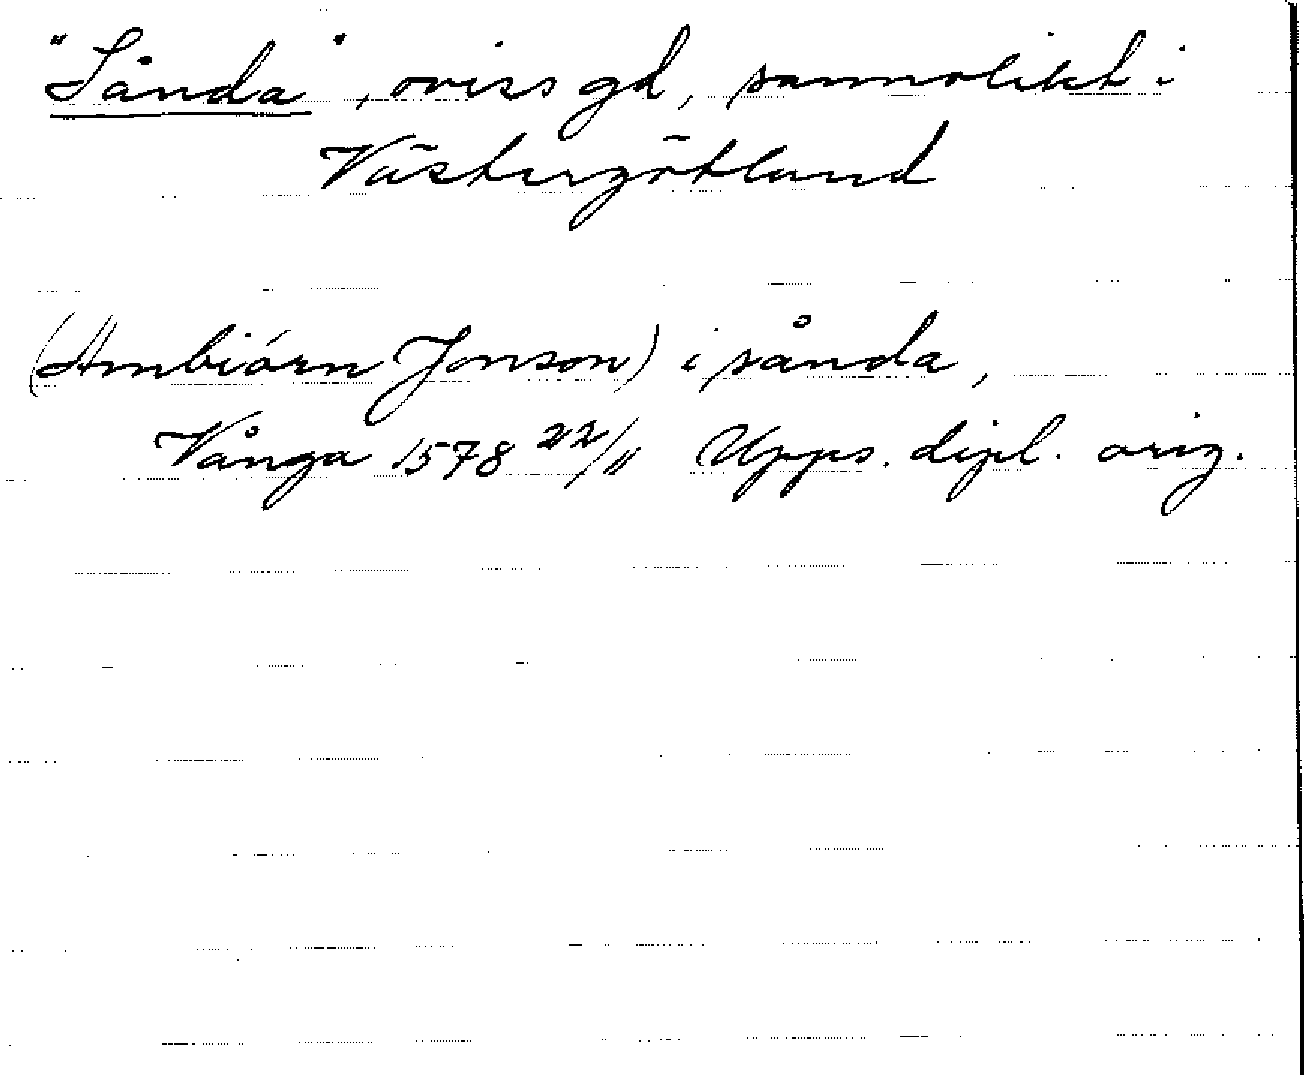 "Sånda", oviss gd, sannolikt i
Västergötland
(Ambiörn Jonson) i sånda,
Vånga 1578 22/11 Upps. dipl. orig.